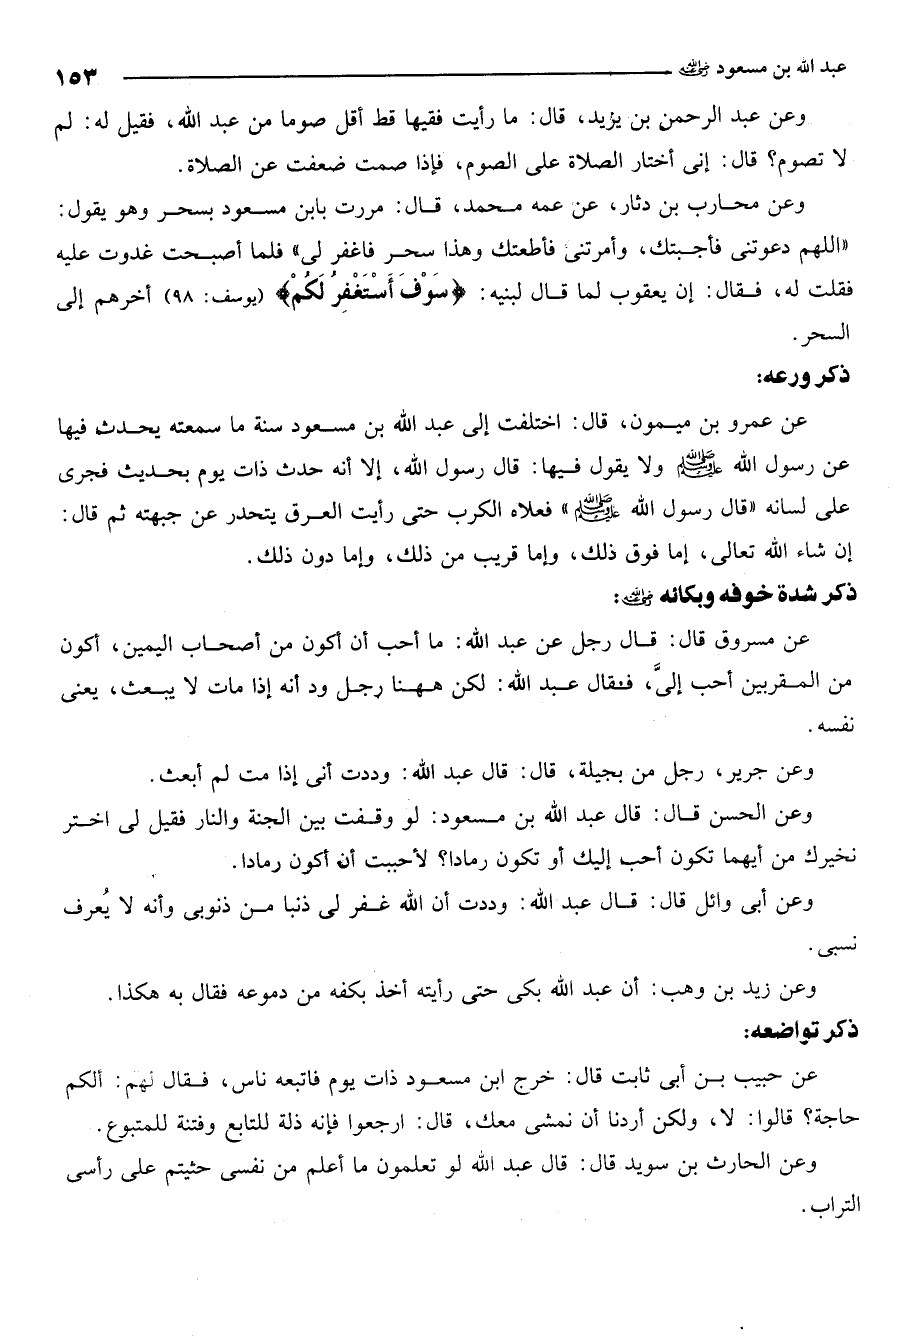 عبد الله بن مسعود رضي الله عنه ١٥٣
وعن عبد الرحمن بن يزيد، قال: ما رأيت فقيها قط أقل صوما من عبد الله، فقيل له: لم
لا تصوم؟ قال: إنى أختار الصلاة على الصوم، فإذا صمت ضعفت عن الصلاة.
وعن محارب بن دثار، عن عمه محمد، قال: مررت بابن مسعود بسحر وهو يقول:
«اللهم دعوتنى فأجبتك، وأمرتنى فأطعتك وهذا سحر فاغفر لى» فلما أصبحت غدوت عليه
فقلت له، فقال: إن يعقوب لما قال لبنيه: ﴿سَوْفَ أَسْتَغْفِرُ لَكُمْ﴾ (يوسف: ٩٨) أخرهم إلى
السحر.
ذكر ورعه:
عن عمرو بن ميمون، قال: اختلفت إلى عبد الله بن مسعود سنة ما سمعته يحدث فيها
عن رسول الله ﷺ ولا يقول فيها: قال رسول الله، إلا أنه حدث ذات يوم بحديث فجرى
على لسانه «قال رسول الله ﷺ» فعلاه الكرب حتى رأيت العرق يتحدر عن جبهته ثم قال:
إن شاء الله تعالى، إما فوق ذلك، وإما قريب من ذلك، وإما دون ذلك.
ذكر شدة خوفه وبكائه رضي الله عنه:
عن مسروق قال: قال رجل عن عبد الله: ما أحب أن أكون من أصحاب اليمين، أكون
من المقربين أحب إلىَّ، فقال عبد الله: لكن ههنا رجل ود أنه إذا مات لا يبعث، يعنى
نفسه.
وعن جرير، رجل من بجيلة، قال: قال عبد الله: وددت أنى إذا مت لم أبعث.
وعن الحسن قال: قال عبد الله بن مسعود: لو وقفت بين الجنة والنار فقيل لى اختر
نخيرك من أيهما تكون أحب إليك أو تكون رمادا؟ لأحببت أن أكون رمادا.
وعن أبى وائل قال: قال عبد الله: وددت أن الله غفر لى ذنبا من ذنوبى وأنه لا يُعرف
نسبى.
وعن زيد بن وهب: أن عبد الله بكى حتى رأيته أخذ بكفه من دموعه فقال به هكذا.
ذكر تواضعه:
عن حبيب بن أبى ثابت قال: خرج ابن مسعود ذات يوم فاتبعه ناس، فقال لهم: ألكم
حاجة؟ قالوا: لا، ولكن أردنا أن نمشى معك، قال: ارجعوا فإنه ذلة للتابع وفتنة للمتبوع.
وعن الحارث بن سويد قال: قال عبد الله لو تعلمون ما أعلم من نفسى حثيتم على رأسى
التراب.